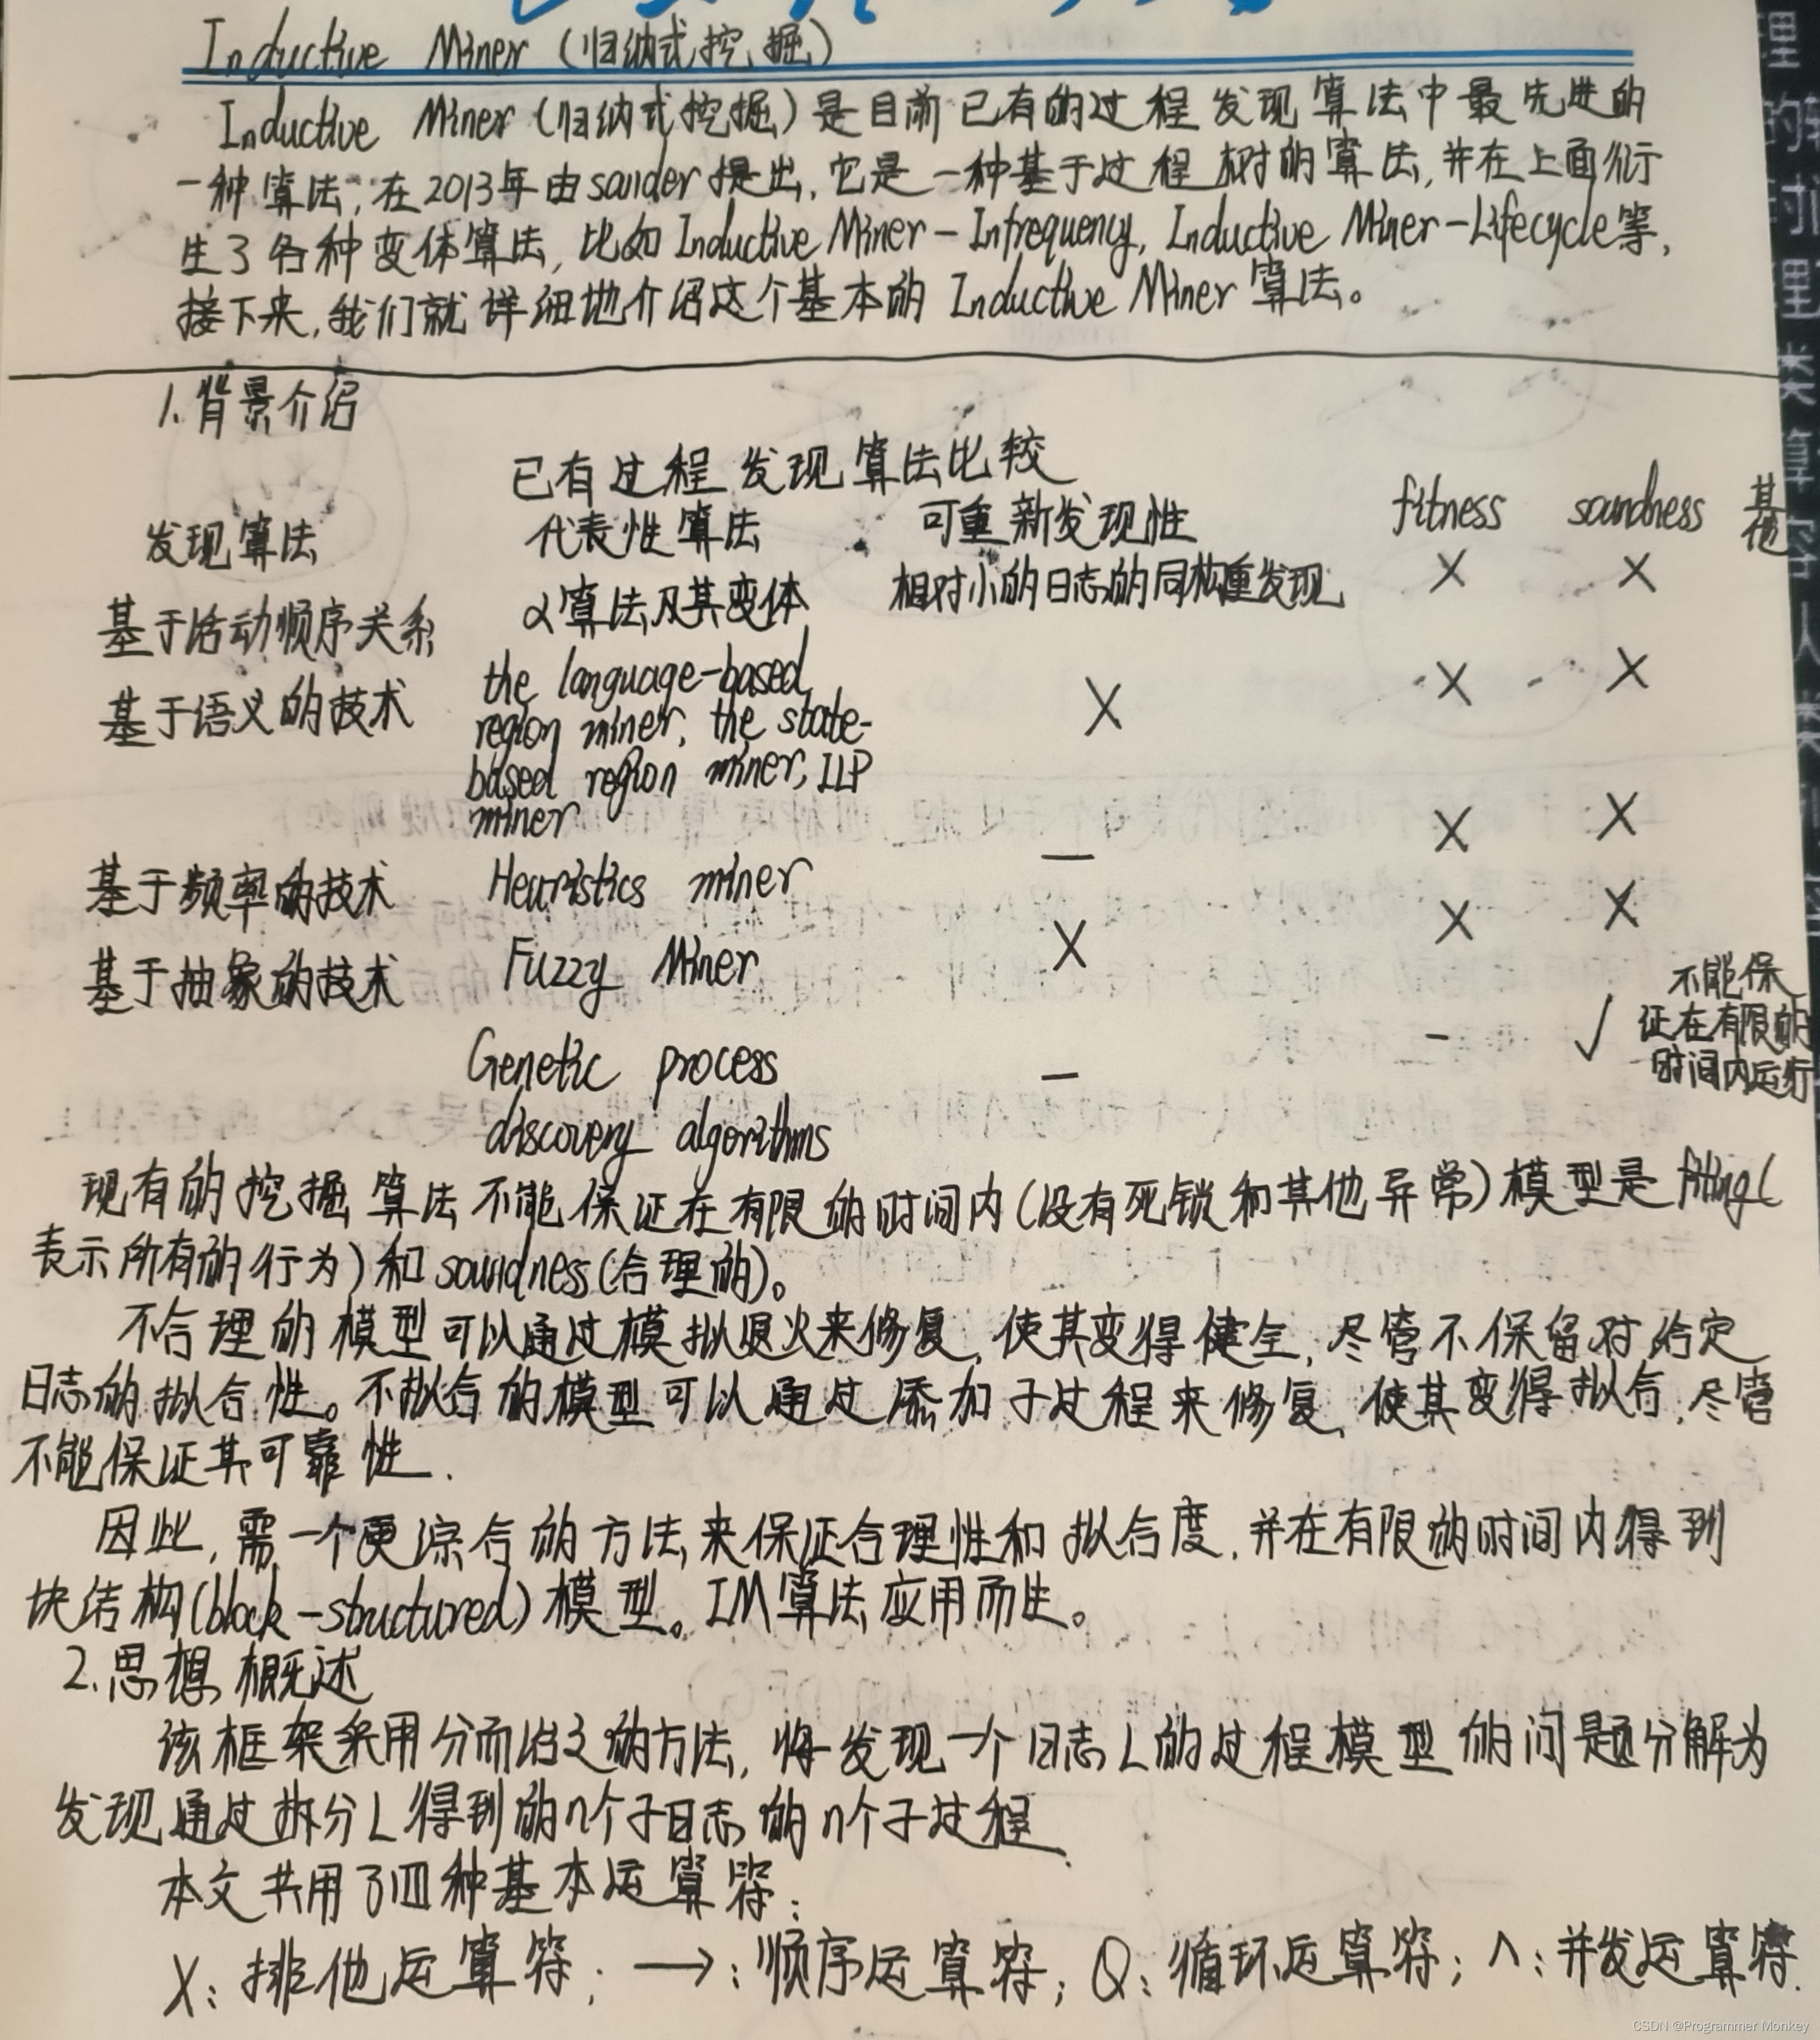 Inductive Miner (归纳式挖掘)
Inductive Miner (归纳式挖掘) 是目前已有的过程发现算法中最先进的
一种算法, 在2013年由sander提出, 它是一种基于过程树的算法, 并在上面衍
生了各种变体算法, 比如 Inductive Miner-Infrequency, Inductive Miner-Lifecycle等,
接下来, 我们就详细地介绍这个基本的 Inductive Miner 算法。
1. 背景介绍
已有过程发现算法比较
发现算法 代表性算法 可重新发现性 fitness soundness 其他
基于活动顺序关系 α算法及其变体 相对小的日志的同构重发现 X X
基于语义的技术 the language-based
region miner, the state-
based region miner, ILP
miner X X X
基于频率的技术 Heuristics miner — X X
基于抽象的技术 Fuzzy Miner X X X
Genetic process
discovery algorithms — - √ 不能保
证在有限的
时间内运行
现有的挖掘算法不能保证在有限的时间内(没有死锁和其他异常)模型是fitting(
表示所有的行为)和soundness(合理的)。
不合理的模型可以通过模拟退火来修复, 使其变得健全, 尽管不保留对给定
日志的拟合性。不拟合的模型可以通过添加子过程来修复, 使其变得拟合, 尽管
不能保证其可靠性.
因此, 需一个更综合的方法来保证合理性和拟合度, 并在有限的时间内得到
块结构(block-structured)模型。IM算法应用而生。
2. 思想概述
该框架采用分而治之的方法, 将发现一个日志L的过程模型的问题分解为
发现通过拆分L得到的n个子日志的n个子过程.
本文共用了四种基本运算符:
X: 排他运算符; →: 顺序运算符; Q: 循环运算符; ∧: 并发运算符.
理
类
算
人
类
CSDN @Programmer Monkey